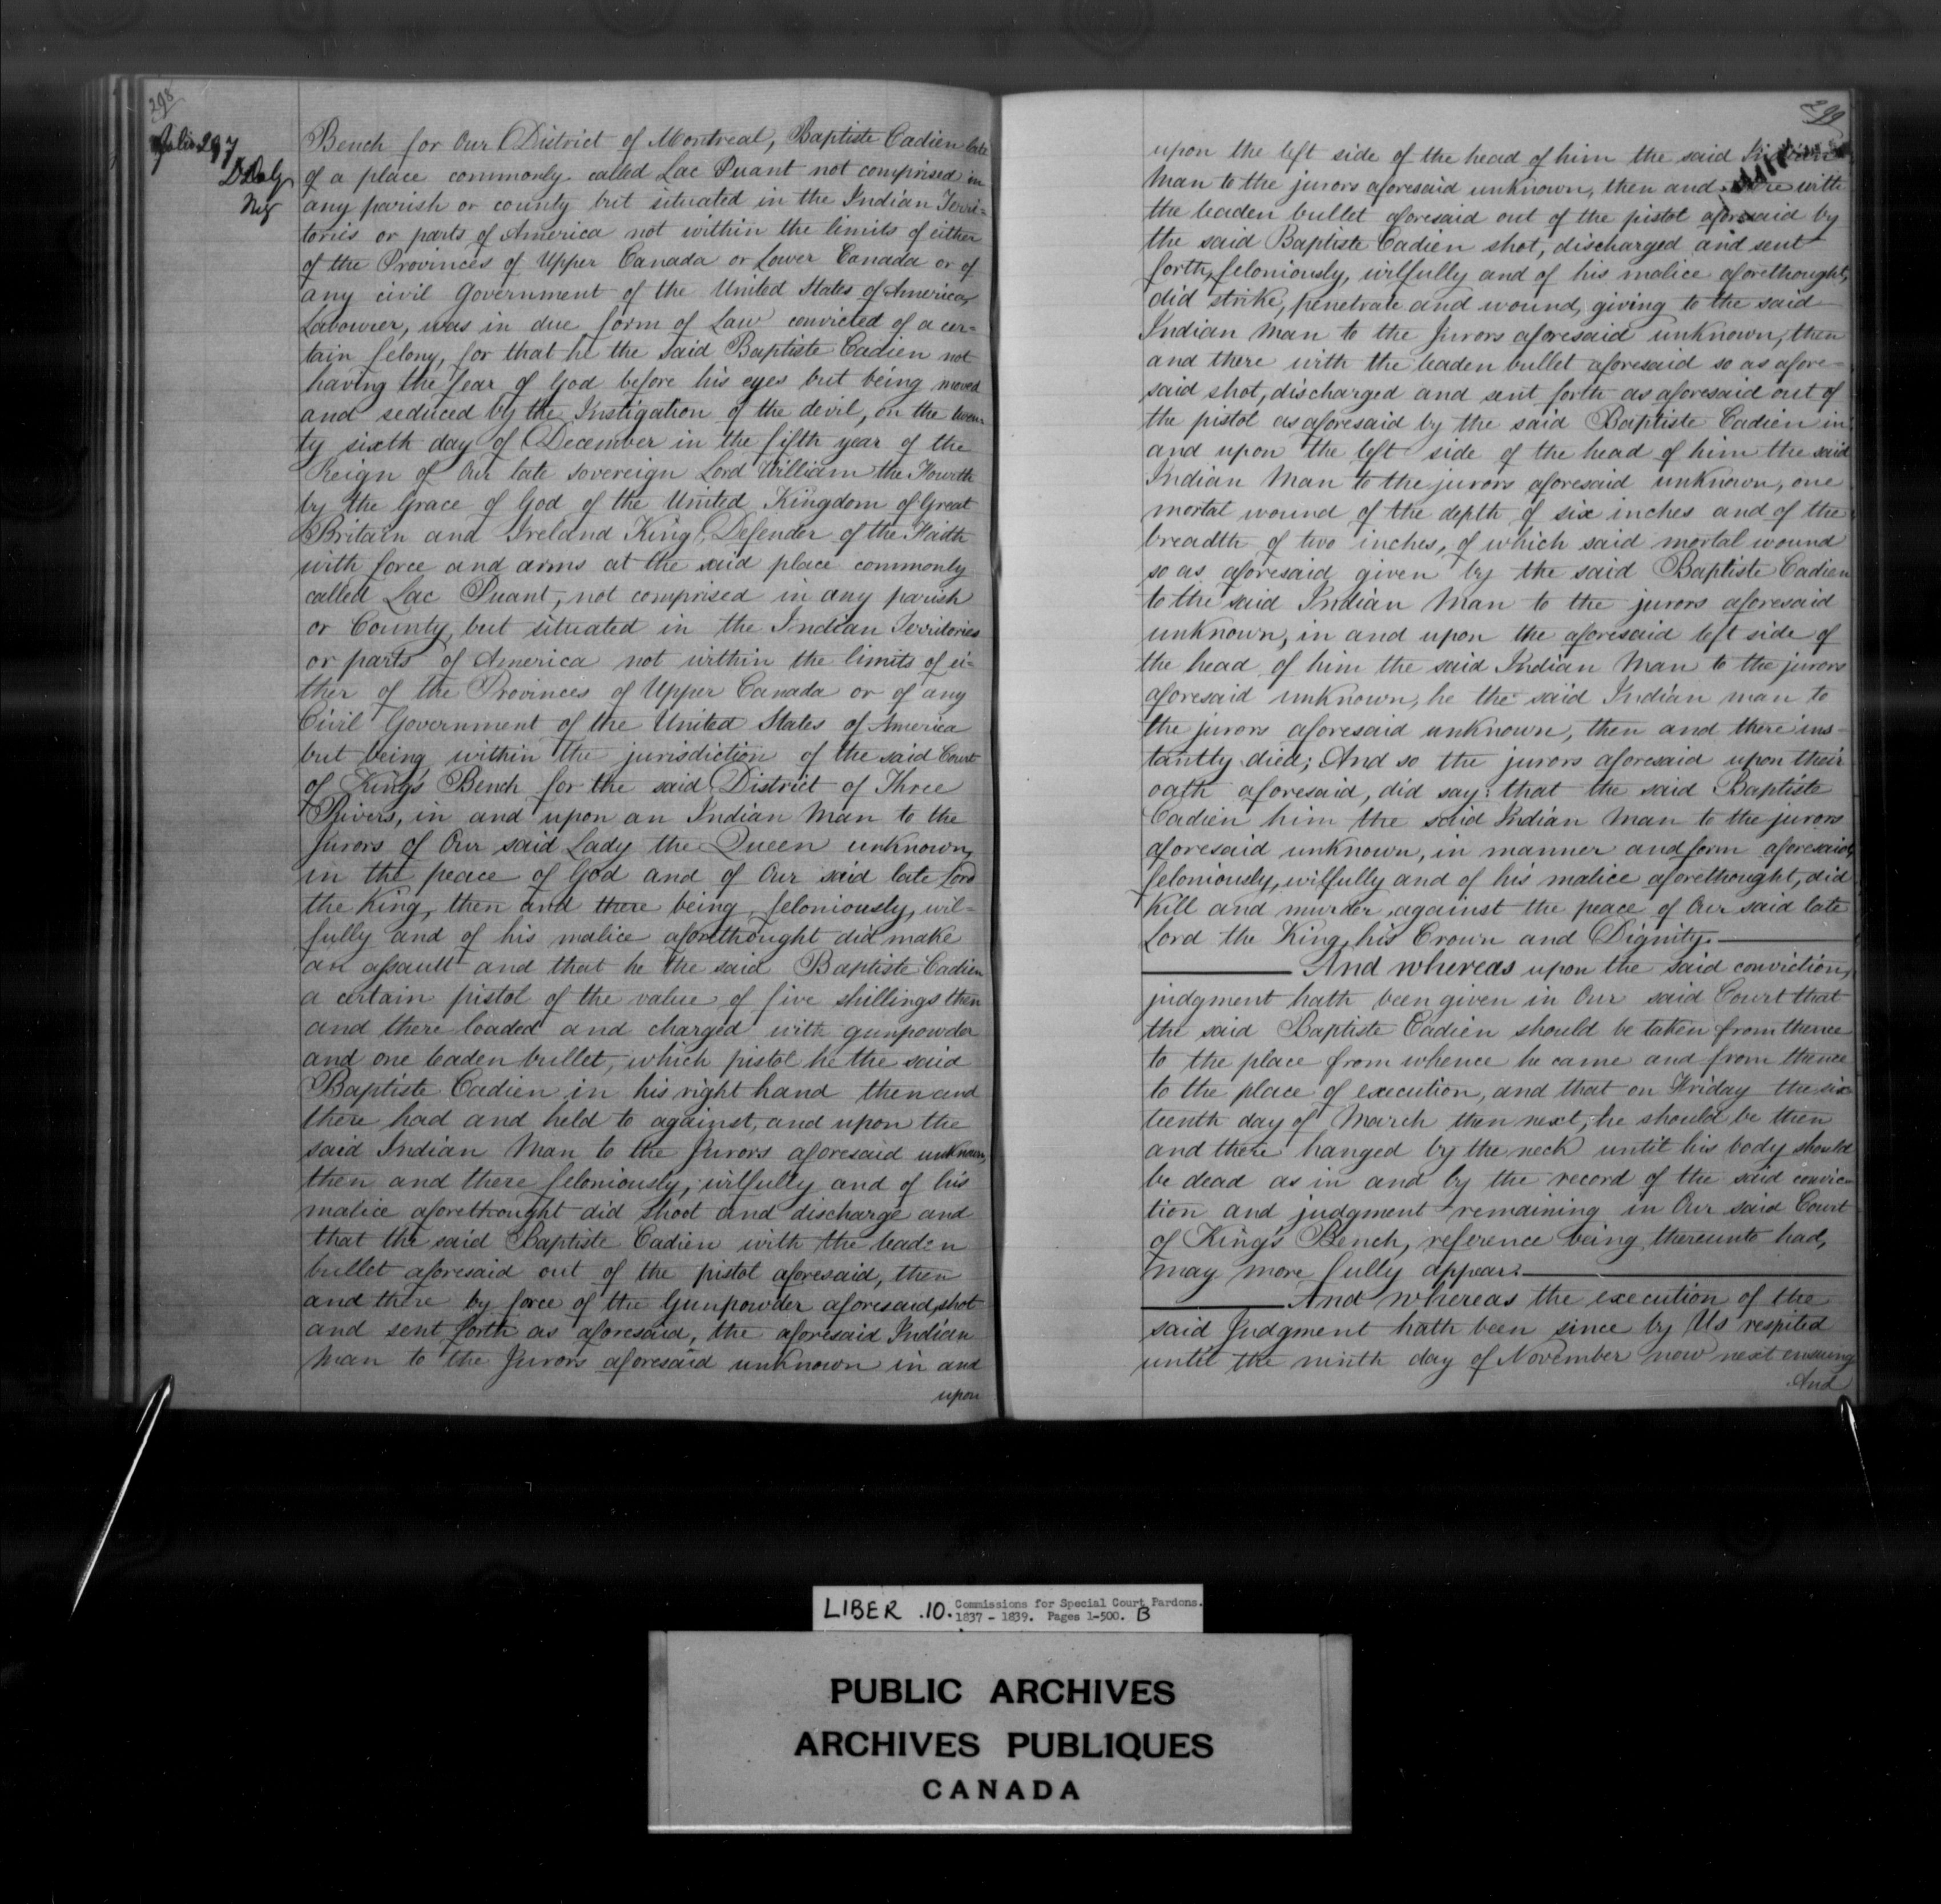 298
Folio 297
D Daly
Reg
Bench for Our District of Montreal, Baptiste Cadien late
of a place commonly called Lac Puant not comprised in
any parish or county but situated in the Indian Terri=
tories or parts of America not within the limits of either
of the Provinces of Upper Canada or Lower Canada or of
any civil Government of the United States of America,
Labourer, was in due form of Law convicted of a cer=
tain felony, for that he the said Baptiste Cadien not
having the fear of God before his eyes but being moved
and seduced by the Instigation of the devil, on the twen=
ty sixth day of December in the fifth year of the
Reign of Our late sovereign Lord William the Fourth
by the Grace of God of the United Kingdom of Great
Britain and Ireland King, Defender of the Faith
with force and arms at the said place commonly
called Lac Puant, not comprised in any parish
or County, but situated in the Indian Territories
or parts of America not within the limits of ei=
ther of the Provinces of Upper Canada or of any
Civil Government of the United States of America
but being within the jurisdiction of the said Court
of King's Bench for the said District of Three
Rivers, in and upon an Indian Man to the
Jurors of Our said Lady the Queen unknown,
in the peace of God and of Our said late Lord
the King, then and there being, feloniously, wil=
fully and of his malice aforethought did make
an assault and that he the said Baptiste Cadien
a certain pistol of the value of five shillings then
and there loaded and charged with gunpowder
and one leaden bullet, which pistol he the said
Baptiste Cadien in his right hand then and
there had and held to against, and upon the
said Indian Man to the Jurors aforesaid unknown,
then and there feloniously, wilfully and of his
malice aforethought did shoot and discharge and
that the said Baptiste Cadien with the leaden
bullet aforesaid out of the pistol aforesaid, then
and there by force of the Gunpowder aforesaid, shot
and sent forth as aforesaid, the aforesaid Indian
Man to the Jurors aforesaid unknown in and
upon
299
upon the left side of the head of him the said Indian
Man to the jurors aforesaid unknown, then and there with
the leaden bullet aforesaid out of the pistol aforesaid by
the said Baptiste Cadien shot, discharged and sent
forth, feloniously, wilfully and of his malice aforethought,
did strike, penetrate and wound, giving to the said
Indian Man to the Jurors aforesaid unknown, then
and there with the leaden bullet aforesaid so as afore=
said shot, discharged and sent forth as aforesaid out of
the pistol as aforesaid by the said Baptiste Cadien in
and upon the left side of the head of him the said
Indian Man to the jurors aforesaid unknown, one
mortal wound of the depth of six inches and of the
breadth of two inches, of which said mortal wound
so as aforesaid given by the said Baptiste Cadien
to the said Indian Man to the jurors aforesaid
unknown, in and upon the aforesaid left side of
the head of him the said Indian Man to the jurors
aforesaid unknown, he the said Indian man to
the jurors aforesaid unknown, then and there ins=
tantly died; And so the jurors aforesaid upon their
oath aforesaid, did say: that the said Baptiste
Cadien him the said Indian Man to the jurors
aforesaid unknown, in manner and form aforesaid,
feloniously, wilfully and of his malice aforethought, did
kill and murder against the peace of Our said late
Lord the King, his Crown and Dignity.
And whereas upon the said conviction,
judgment hath been given in Our said Court that
the said Baptiste Cadien should be taken from thence
to the place from whence he came and from thence
to the place of execution, and that on Friday the six
teenth day of March then next, he should be then
and there hanged by the neck until his body should
be dead as in and by the record of the said convic=
tion and judgment remaining in Our said Court
of King's Bench, reference being thereunto had,
may more fully appear.
And whereas the execution of the
said Judgment hath been since by Us respited
until the ninth day of November now next ensuing
And
LIBER .10. Commissions for Special Court Pardons.
1837 - 1839. Pages 1-500. B
PUBLIC ARCHIVES
ARCHIVES PUBLIQUES
CANADA